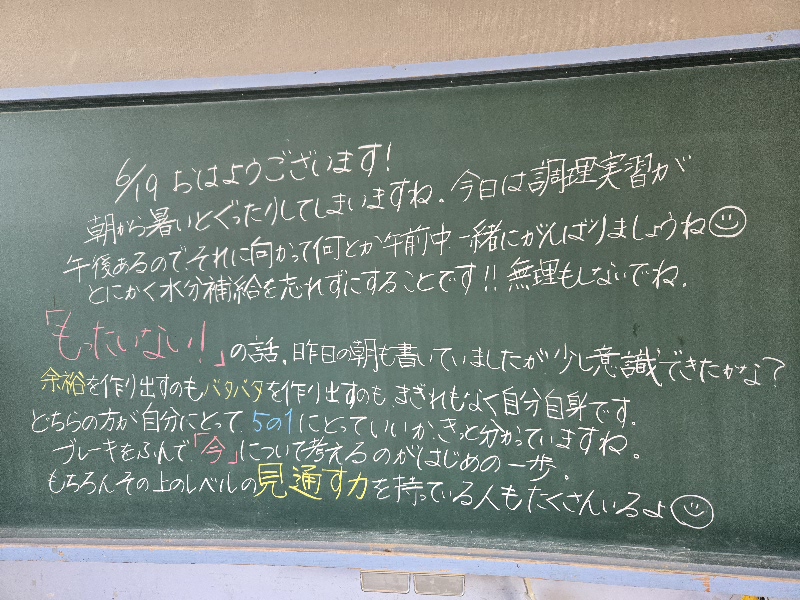 6/19 おはようございます!
朝から暑いとぐったりしてしまいますね。今日は調理実習が
午後あるので、それに向かって何とか午前中一緒にがんばりましょうね☺
とにかく水分補給を忘れずにすることです!!無理もしないでね。
「もったいない!」の話、昨日の朝も書いていましたが少し意識できたかな?
余裕を作り出すのもバタバタを作り出すのもまぎれもなく自分自身です。
どちらの方が自分にとって、5の1にとっていいか、きっと分かっていますね。
ブレーキをふんで「今」について考えるのがはじめの一歩。
もちろんその上のレベルの見通す力を持っている人もたくさんいるよ☺